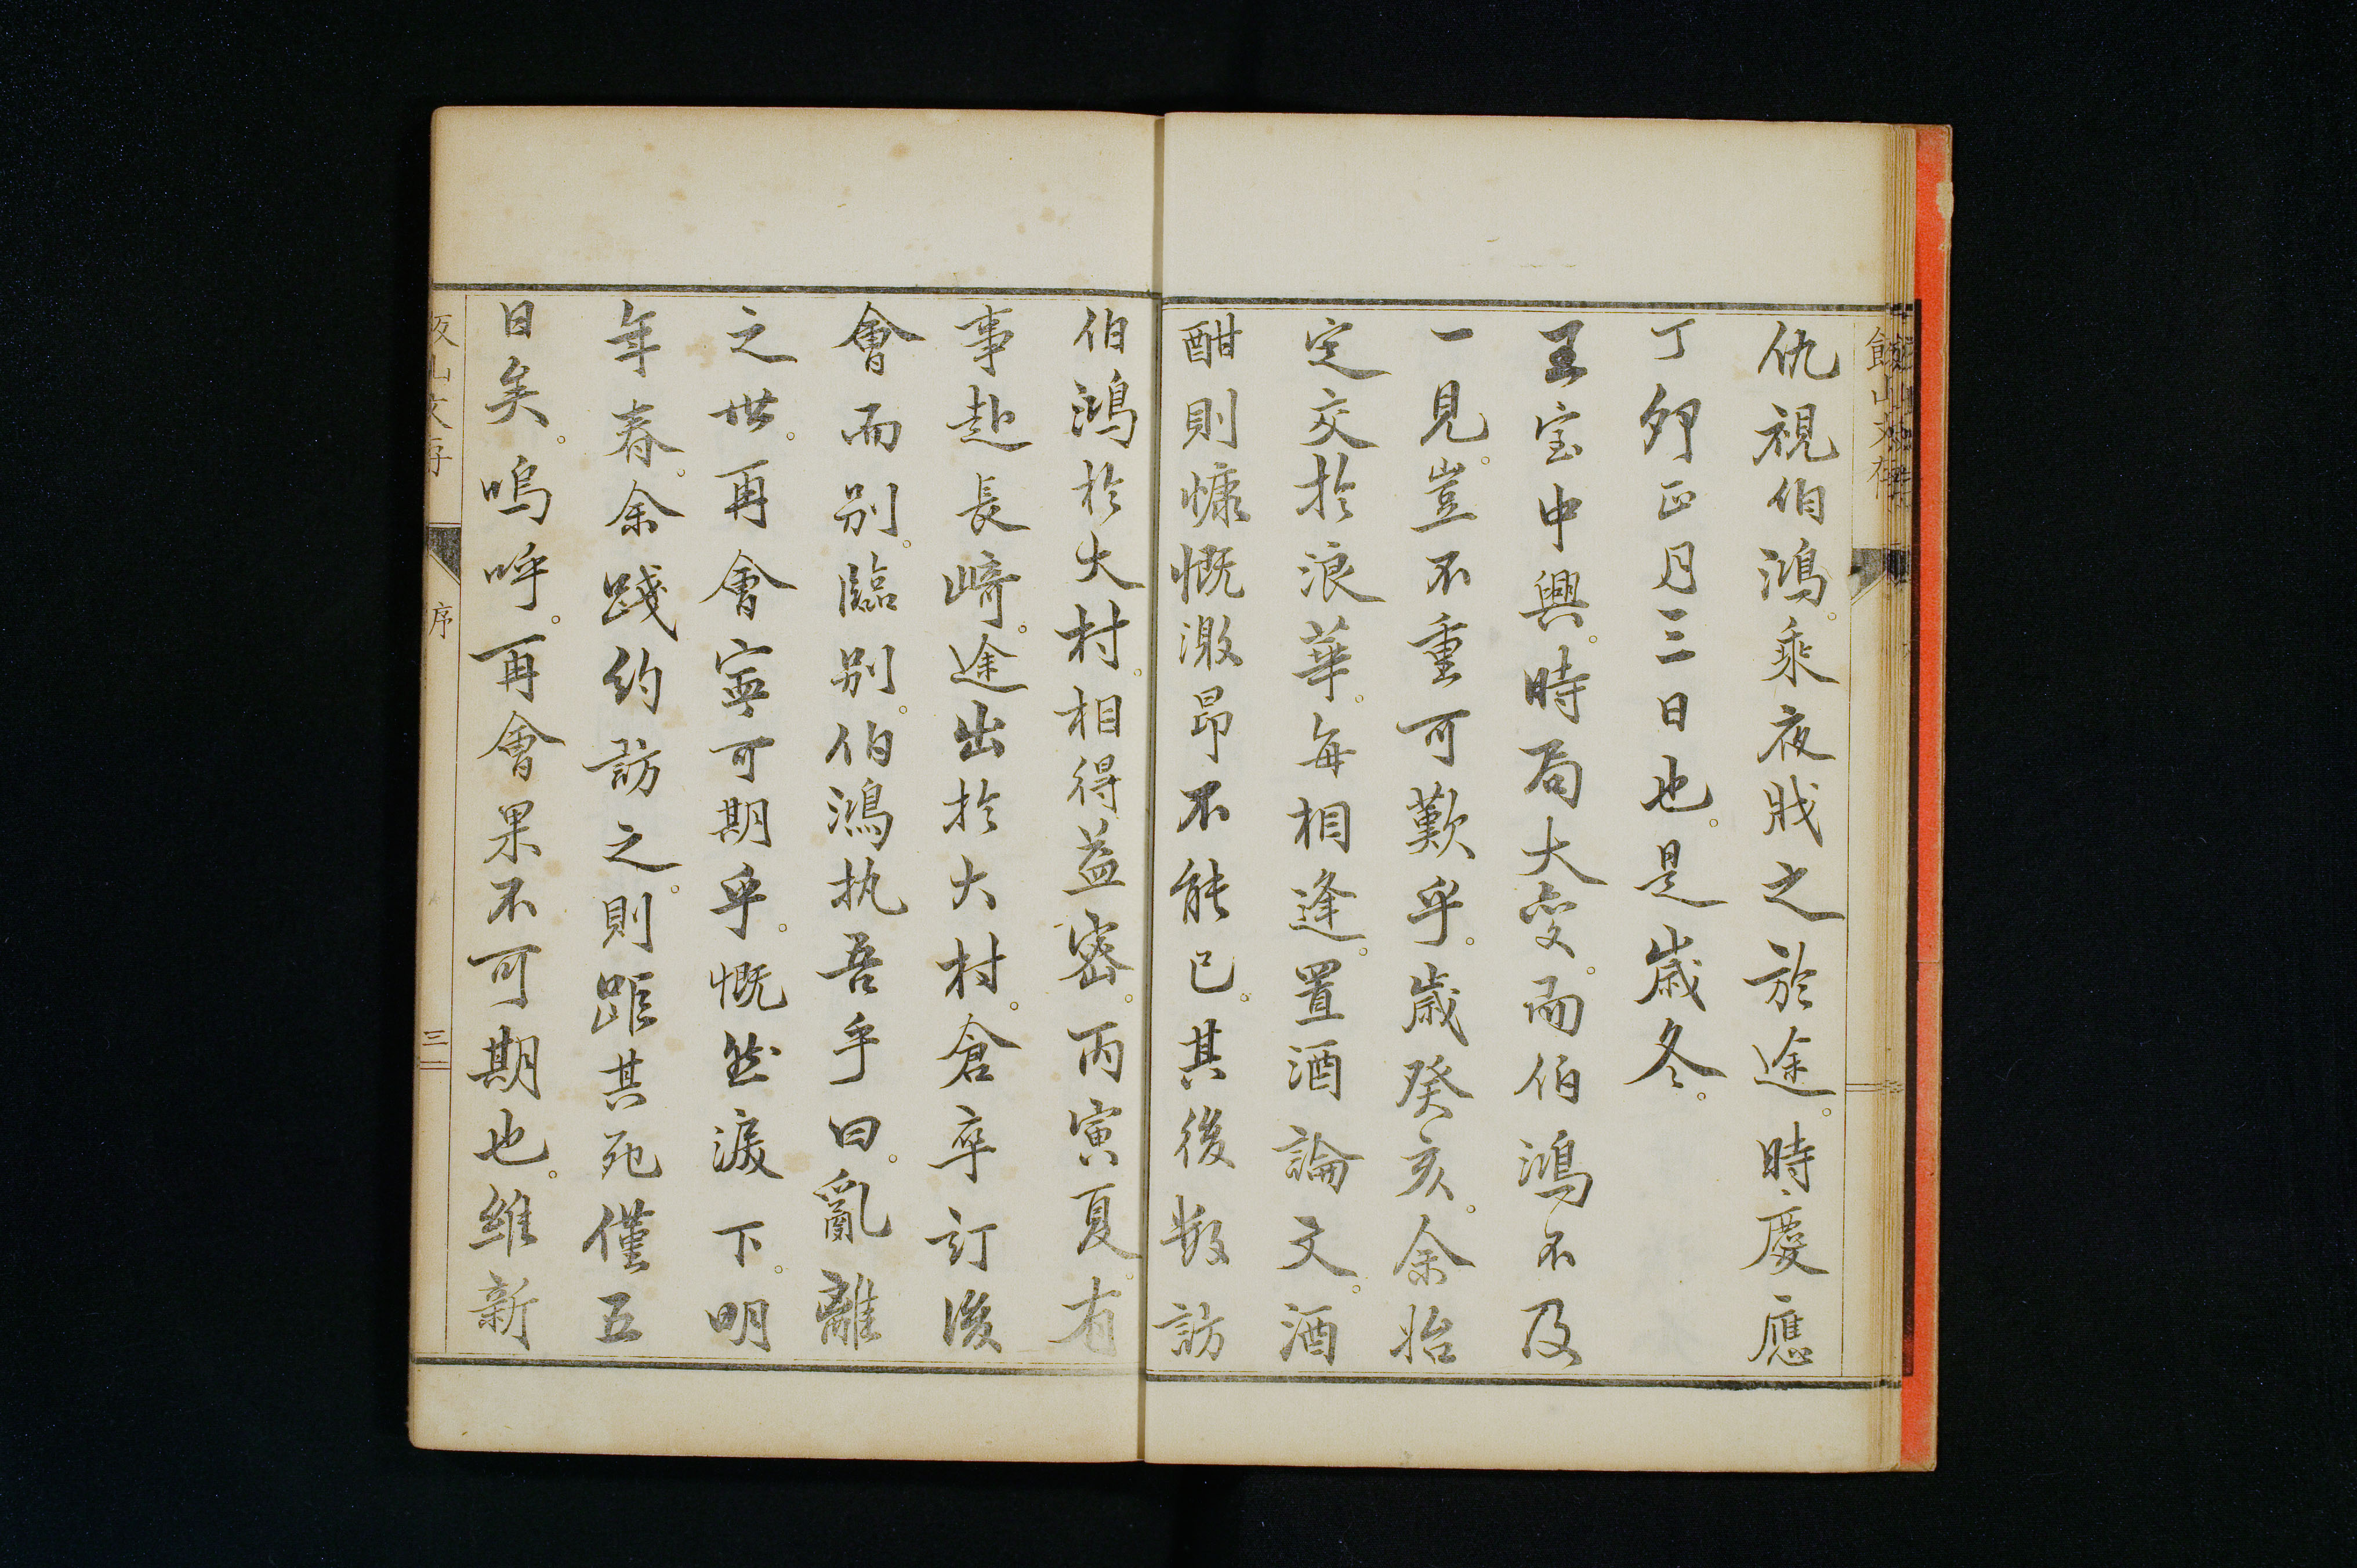 仇視伯鴻。乘夜戕之於途。時慶應
丁卯正月三日也。是歲冬。
王室中興。時局大變。而伯鴻不及
一見。豈不重可歎乎。歲癸亥。余始
定交於浪華。每相逢。置酒論文。酒
酣則慷慨激昂不能已。其後數訪
伯鴻於大村。相得益密。丙寅夏。有
事赴長崎。途出於大村。倉卒訂後
會而別。臨別。伯鴻執吾手曰。亂離
之世。再會寧可期乎。慨然淚下。明
年春。余踐約訪之。則距其死僅五
日矣。嗚呼。再會果不可期也。維新
飯山文存
序
三